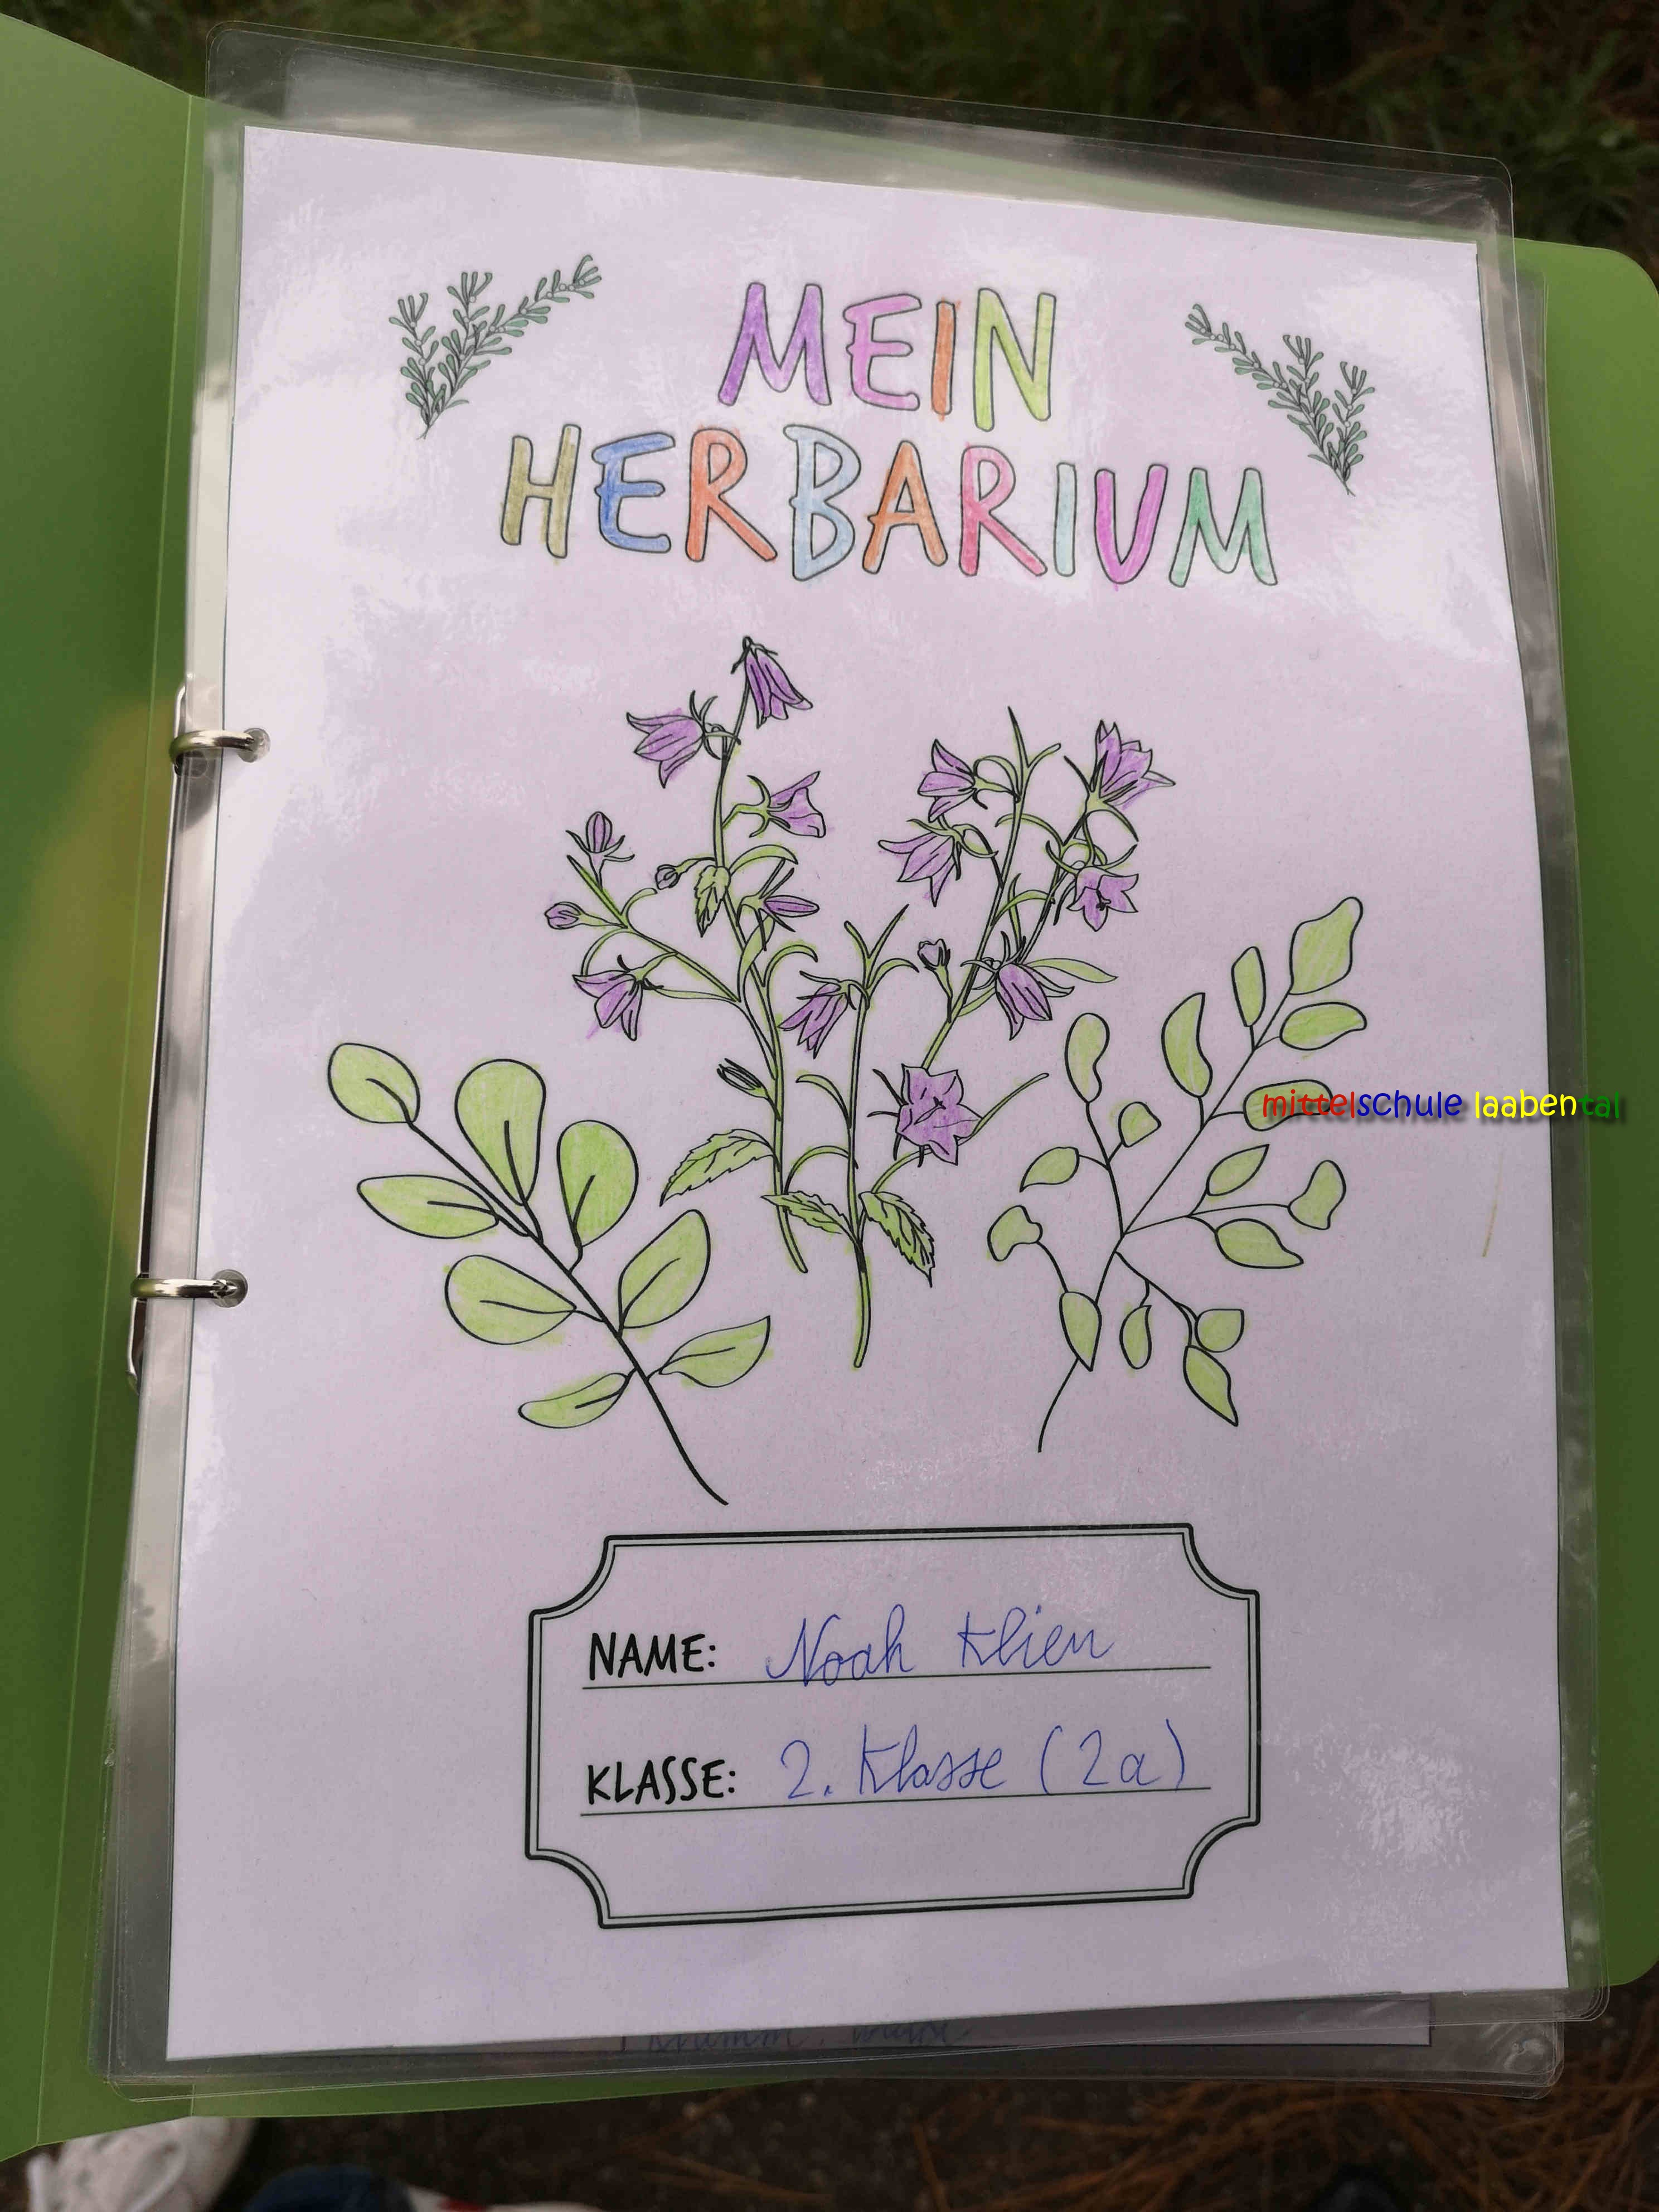 MEIN
HERBARIUM
mittelschule laabental
NAME: Noah Klien
KLASSE: 2. Klasse (2a)